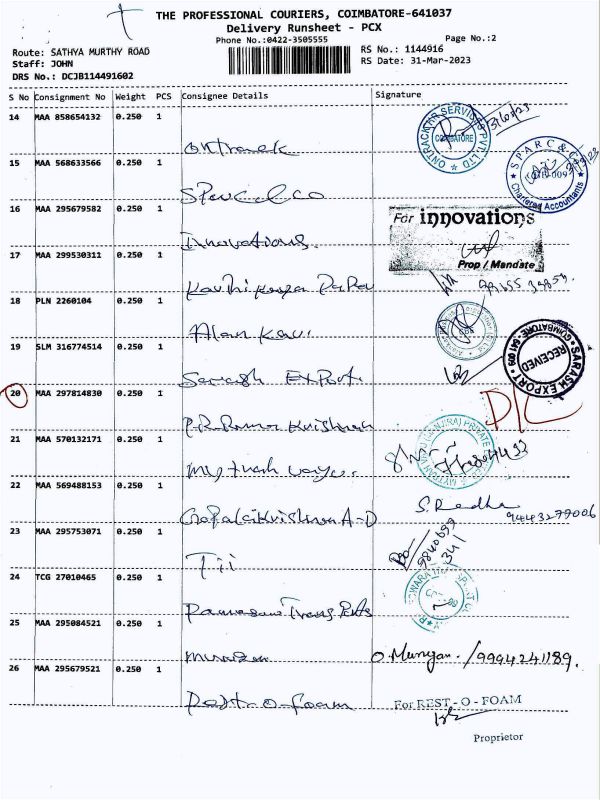 THE PROFESSIONAL COURIERS, COIMBATORE-641037
Delivery Runsheet - PCX
Phone No.:0422-3505555
Page No.:2
Route: SATHYA MURTHY ROAD
Staff: JOHN
DRS No.: DCJB114491602
RS No.: 1144916
RS Date: 31-Mar-2023
S No Consignment No Weight PCS Consignee Details Signature
14 MAA 858654132 0.250 1
ONTRACK HR SERVICES PVT. LTD
COIMBATORE
15 MAA 568633566 0.250 1
SPARC & CO
Chartered Accountants
16 MAA 295679582 0.250 1
Innovations.
For innovations
Prop / Mandate
17 MAA 299530311 0.250 1
18 PLN 2260104 0.250 1
19 SLM 316774514 0.250 1
Sarash Export.
SARASH EXPORT
COIMBATORE - 641 009
RECEIVED
20 MAA 297814830 0.250 1
P.R. Rama Krishnan
D/L
21 MAA 570132171 0.250 1
22 MAA 569488153 0.250 1
Gopala Krishnan A-D
S. Radha
9443279006
23 MAA 295753071 0.250 1
Tii
9840699
341
24 TCG 27010465 0.250 1
25 MAA 295084521 0.250 1
O. Murugan. / 9994241189.
26 MAA 295679521 0.250 1
Rest-O-Foam
For REST - O - FOAM
Proprietor